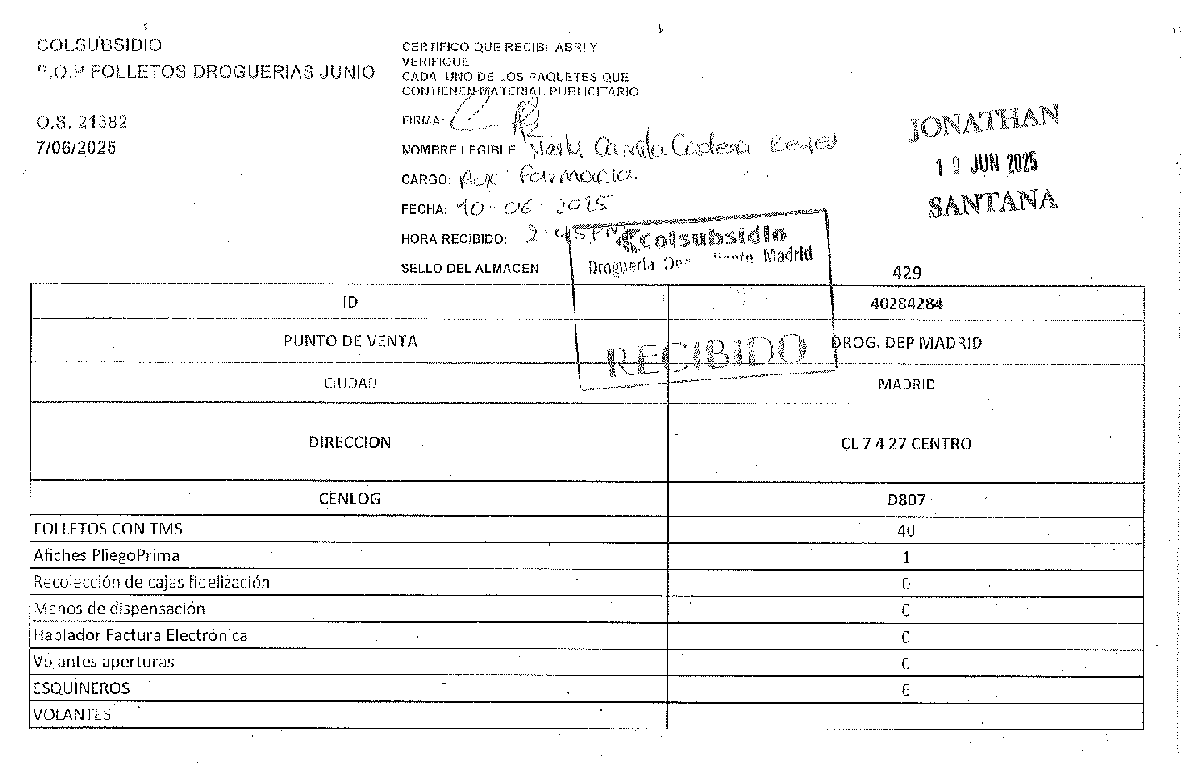 COLSUBSIDIO
P.O.P FOLLETOS DROGUERIAS JUNIO
O.S. 21382
7/06/2025
CERTIFICO QUE RECIBI ABRI Y
VERIFIQUE
CADA UNO DE LOS PAQUETES QUE
CONTIENEN MATERIAL PUBLICITARIO
FIRMA:
NOMBRE LEGIBLE
CARGO: Aux Farmacia
FECHA: 10-06-2025
HORA RECIBIDO: 2:45 PM
SELLO DEL ALMACEN
JONATHAN
10 JUN 2025
SANTANA
Colsubsidio
Droguería Madrid
RECIBIDO
429
ID 40284284
PUNTO DE VENTA DROG. DEP MADRID
CIUDAD MADRID
DIRECCION CL 7 4 27 CENTRO
CENLOG D807
FOLLETOS CON TMS 40
Afiches PliegoPrima 1
Recolección de cajas fidelización 0
Menos de dispensación 0
Hablador Factura Electrónica 0
Volantes aperturas 0
ESQUINEROS
VOLANTES